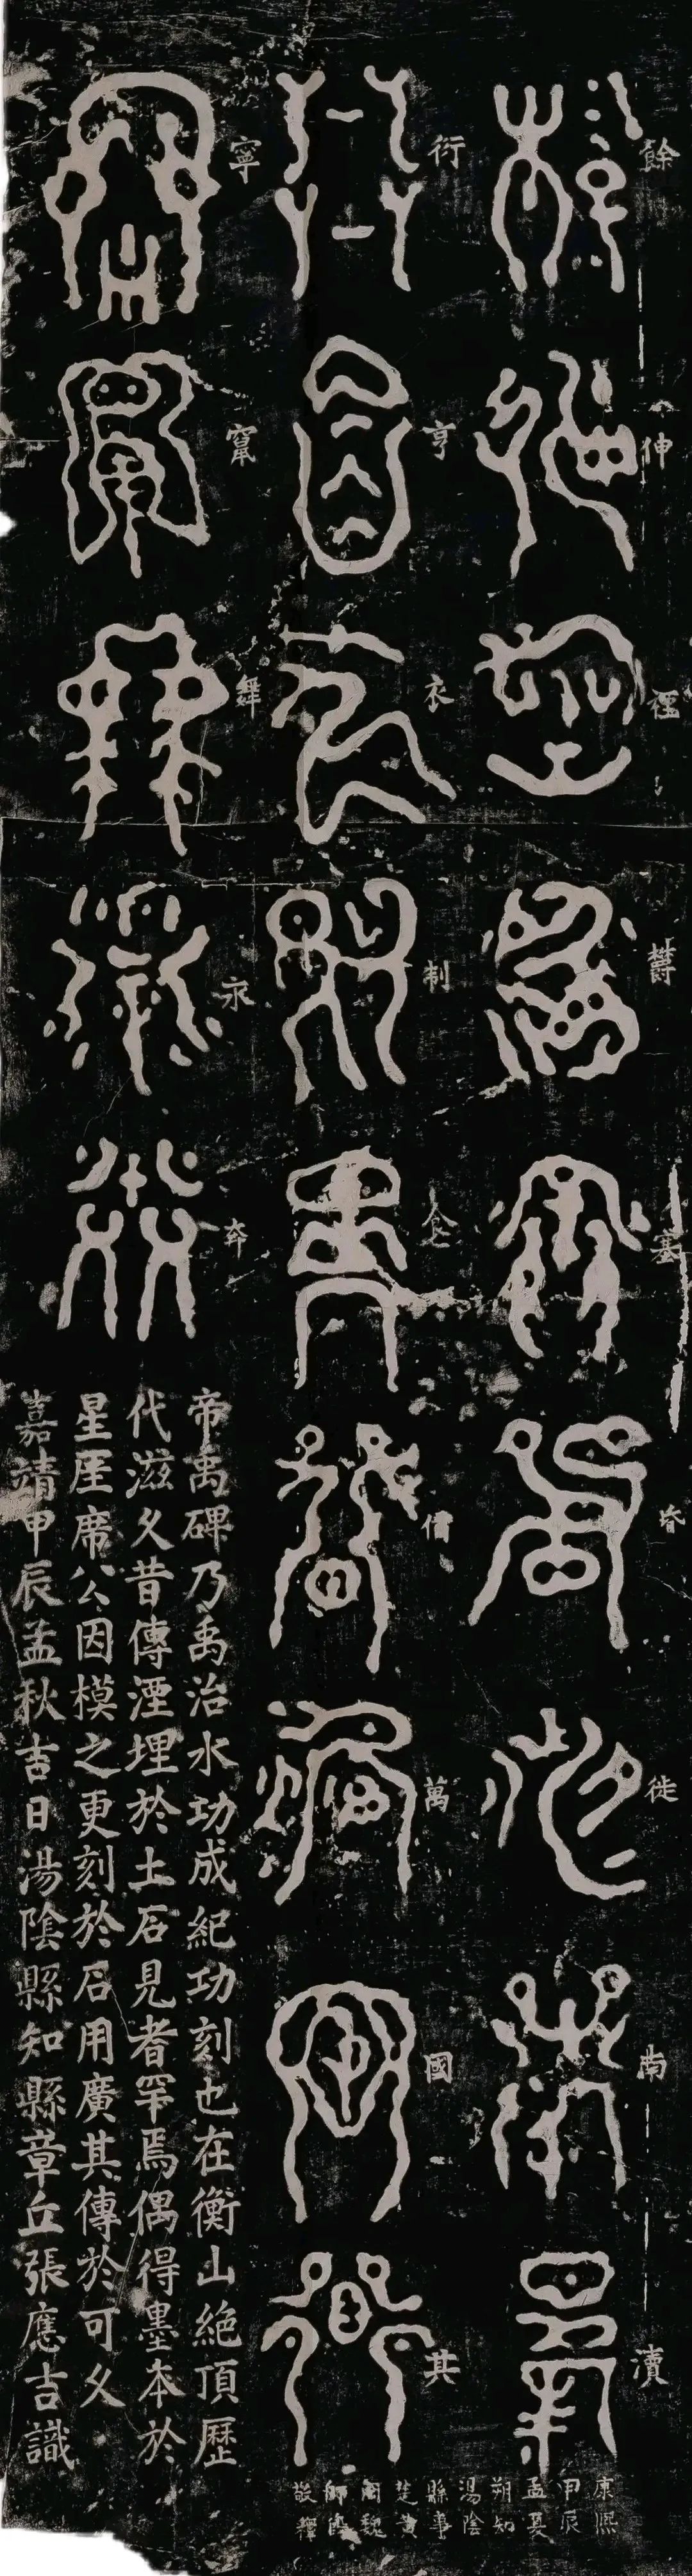 餘伸禋欝塞昏徙南瀆
衍亨衣制食備萬國其
寧竄舞永奔
帝禹碑乃禹治水功成紀功刻也在衡山絶頂歷
代滋久昔傳湮埋於土石見者罕焉偶得墨本於
星厓席公因模之更刻於石用廣其傳於可久
嘉靖甲辰孟秋吉日湯陰縣知縣章丘張應吉識
康熙
甲辰
孟夏
朔知
湯陰
縣事
楚黄
岡魏
師
敬釋